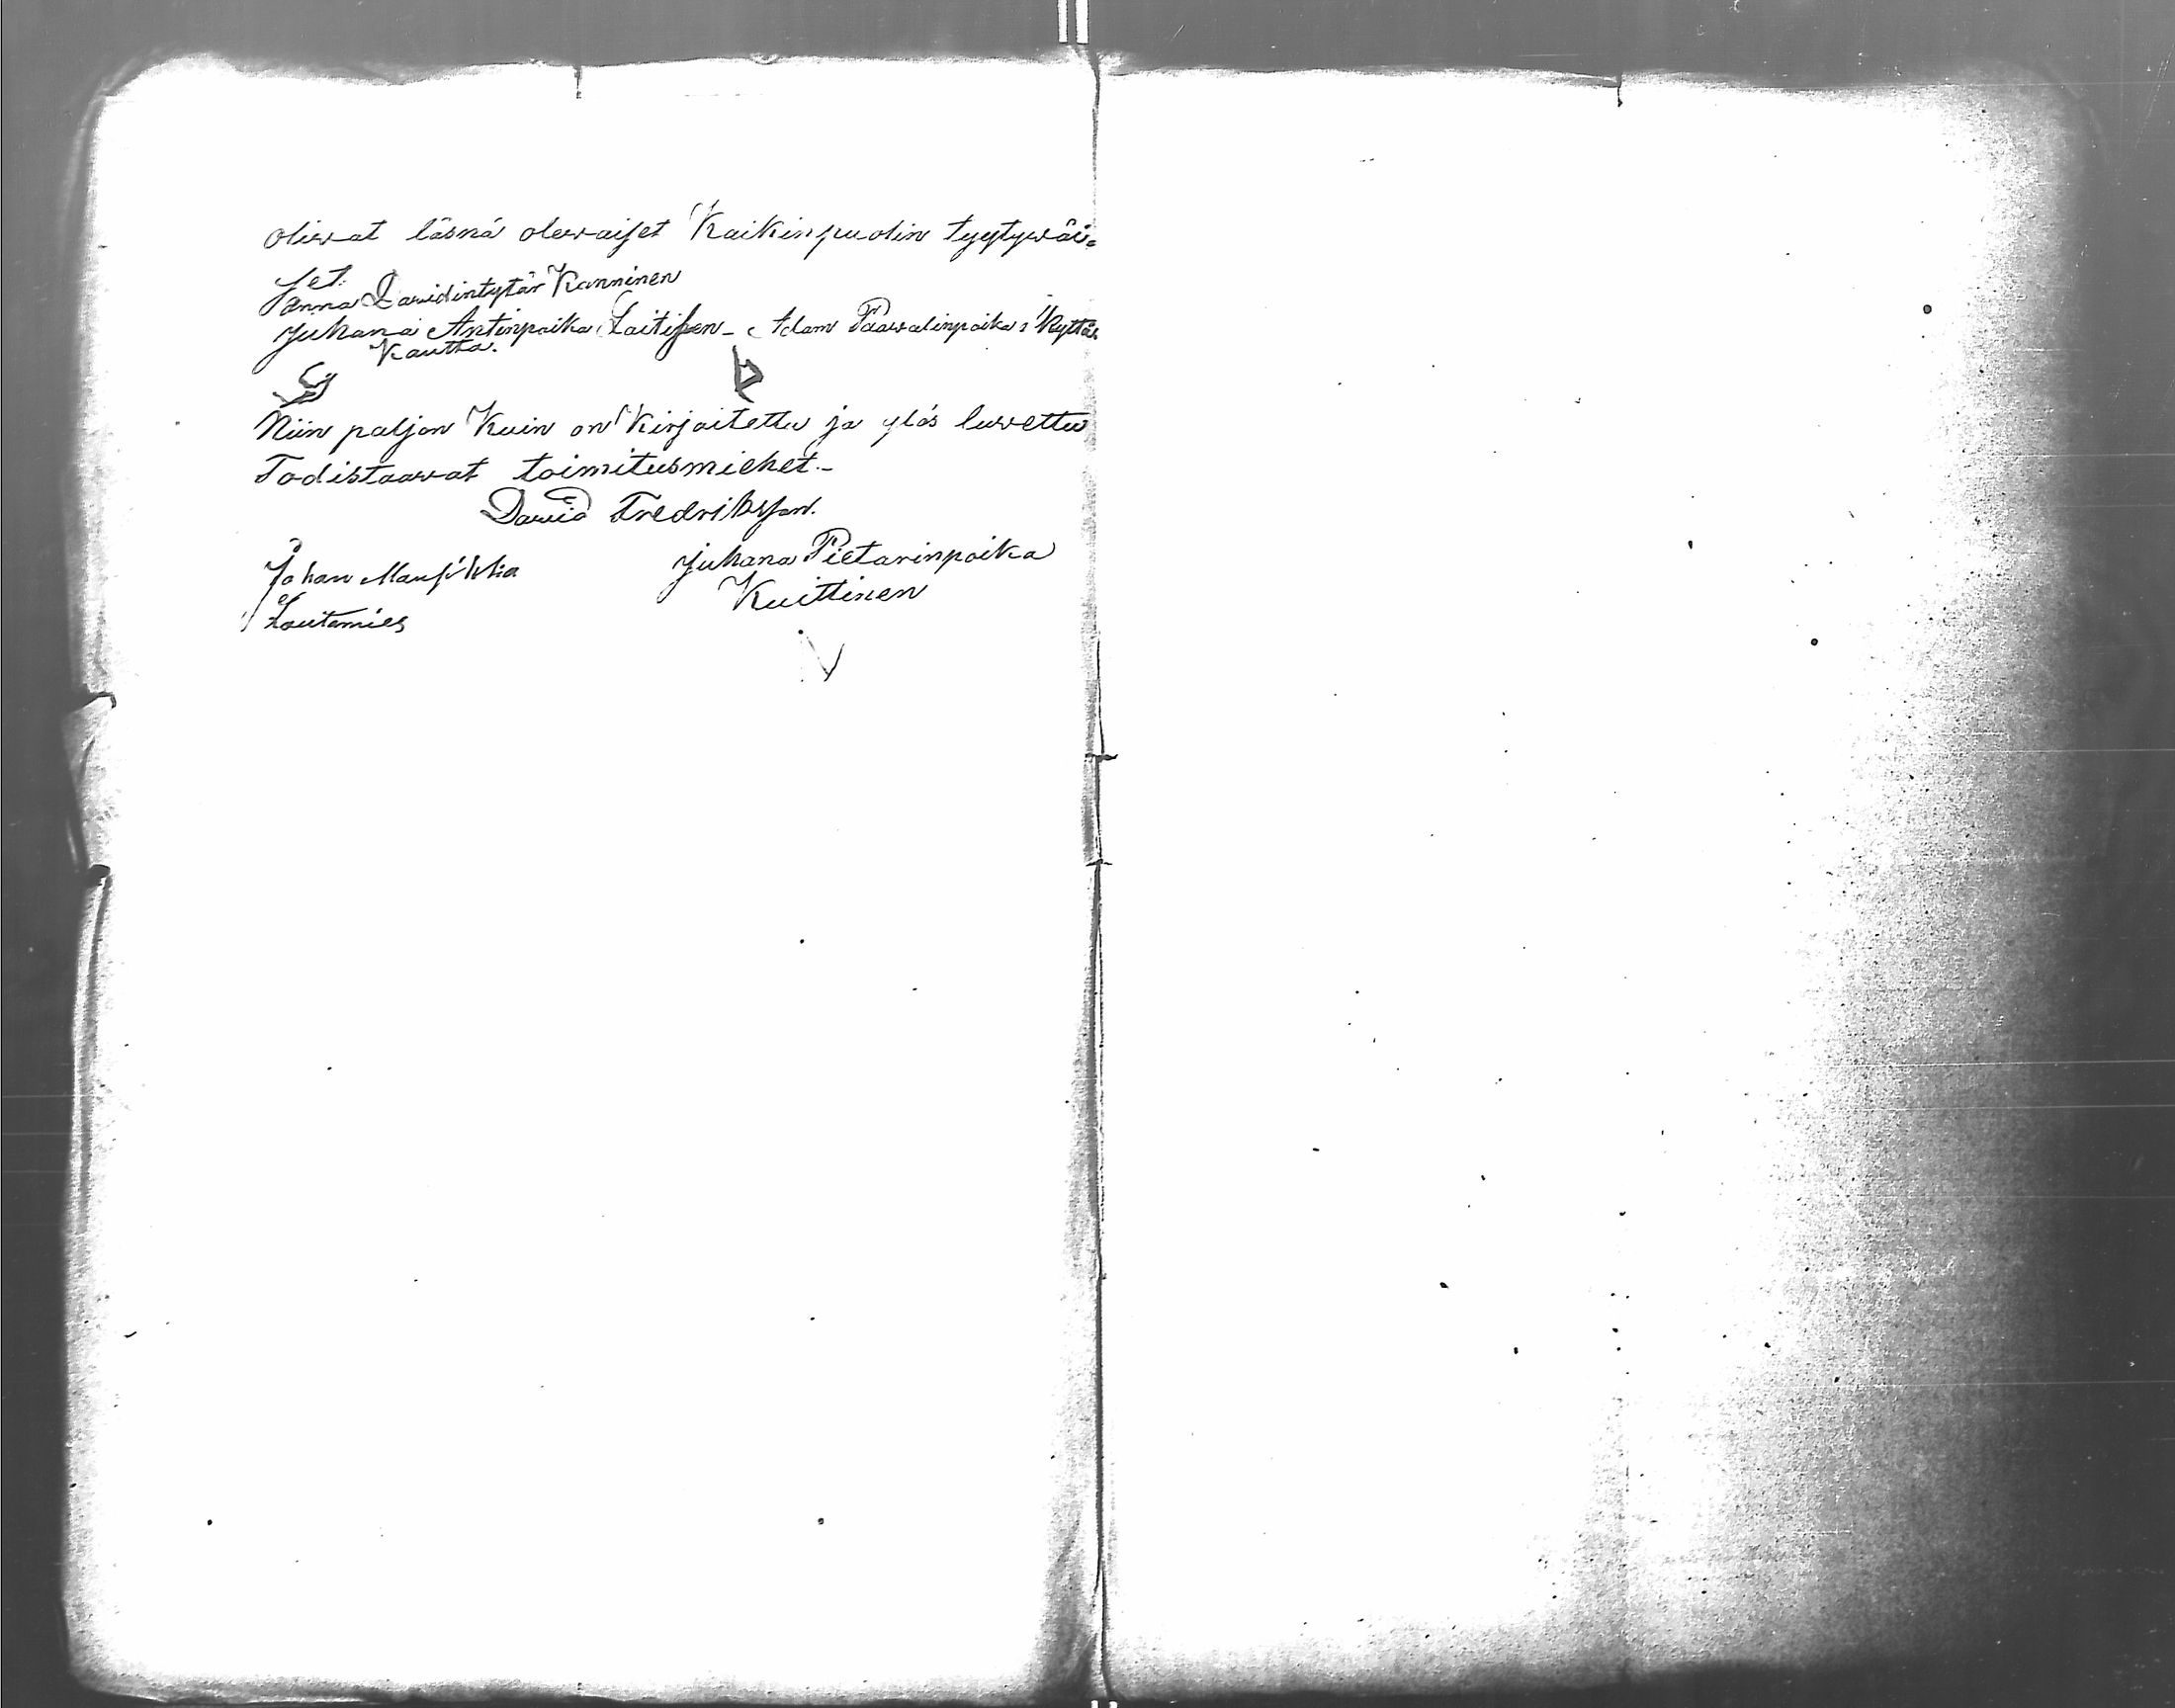 oliwat läsnä olewaiset Kaikinpuolin tyytywäi-
set.
Anna Dawidintytär Kanninen
Juhana Antinpoika Laitisen - Adam Paawalinpoika
Kautta.
Niin paljon Kuin on Kirjoitettu ja ylös luwettu
Todistaawat toimitusmiehet.-
Dawid Fredriksson.
Johan
Juhana Pietarinpoika
Lautamies
Kuittinen